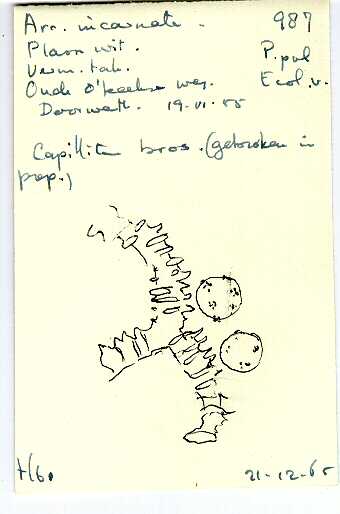 Arc. incarnata. 987
Plasm wit. P. pul
Verm. tak. Ecol. v.
Oude weg.
Doorwerth. 19-VI-65
Capillitium bros. (gebroken in
prep.)
21-12-65